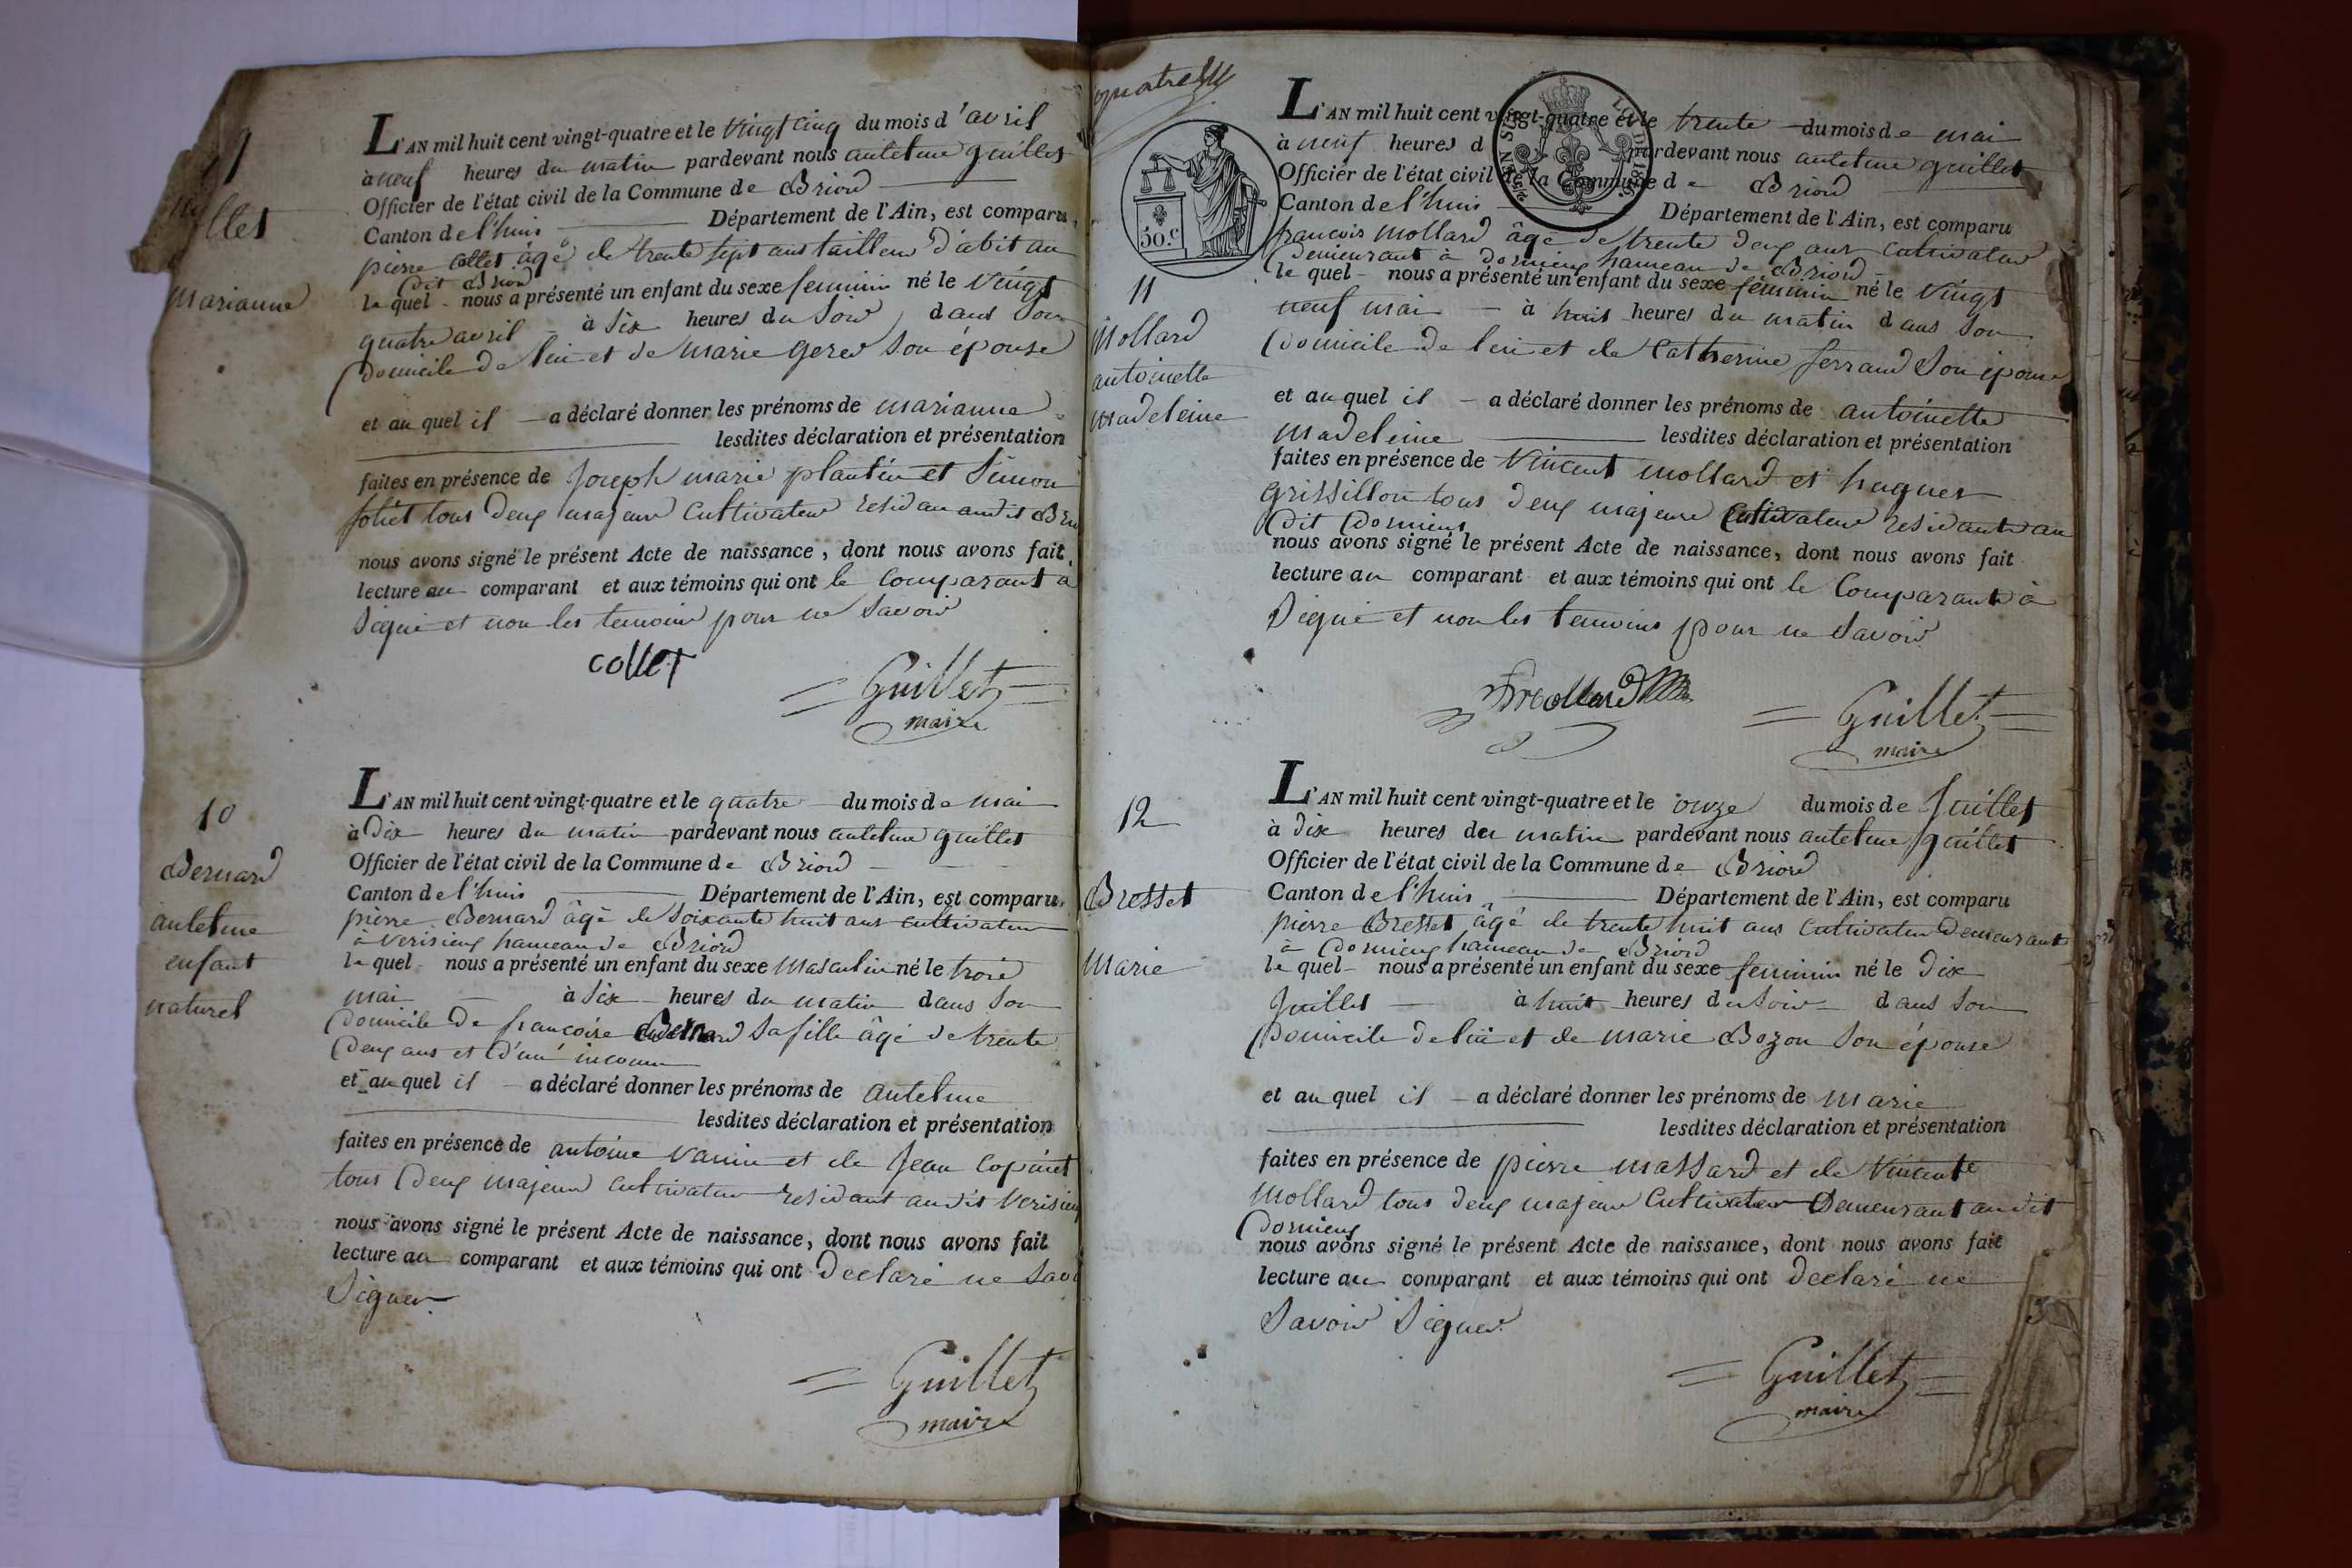 9
llet
Marianne
L'AN mil huit cent vingt-quatre et le vingt cinq du mois d'avril
à neuf heures du matin pardevant nous antelme guillet
Officier de l'état civil de la Commune de Briord
Canton de l'huis Département de l'Ain, est comparu
pierre collet âgé de trente sept ans tailleur d'abit au
dit Briord
le quel nous a présenté un enfant du sexe feminin né le vingt
quatre avril à six heures du soir dans son
domicile de lui et de marie gerer son épouse
et au quel il a déclaré donner les prénoms de marianne
lesdites déclaration et présentation
faites en présence de Joseph marie plantin et Simon
foliet tous deux majeur cultivateur residan audit Brio
nous avons signé le présent Acte de naissance, dont nous avons fait
lecture au comparant et aux témoins qui ont le comparant a
signé et non les temoins pour ne savoir
collet
Guillet
maire
10
Bernard
antelme
enfant
naturel
L'AN mil huit cent vingt-quatre et le quatre du mois de mai
à dix heures du matin pardevant nous antelme guillet
Officier de l'état civil de la Commune de Briord
Canton de l'huis Département de l'Ain, est comparu
pierre Bernard âgé de soixante huit ans cultivateur
à verisieux hameau de Briord
le quel nous a présenté un enfant du sexe masculin né le trois
mai à six heures du matin dans son
domicile de francoise Bernard sa fille âgé de trente
deux ans et d'un inconnu
et au quel il a déclaré donner les prénoms de antelme
lesdites déclaration et présentation
faites en présence de antoine vanin et de Jean Copinet
tous deux majeur cultivateur residant audit verisieux
nous avons signé le présent Acte de naissance, dont nous avons fait
lecture au comparant et aux témoins qui ont declaré ne savo
signer
Guillet
maire
quatre
50.c
11
Mollard
antoinette
madeleine
L'AN mil huit cent vingt-quatre et le trente du mois de mai
à neuf heures d pardevant nous antelme guillet
Officier de l'état civil de la Commune de Briord
Canton de l'huis Département de l'Ain, est comparu
francois Mollard âgé de trente deux ans cultivateur
demeurant à dornieux hameau de Briord
le quel nous a présenté un enfant du sexe feminin né le vingt
neuf mai à huit heures du matin dans son
domicile de lui et de Catherine ferrand son épouse
et au quel il a déclaré donner les prénoms de antoinette
madeleine lesdites déclaration et présentation
faites en présence de vincent mollard et hugues
grissillon tous deux majeure cultivateur residant au
dit dornieux
nous avons signé le présent Acte de naissance, dont nous avons fait
lecture au comparant et aux témoins qui ont le comparant à
signé et non les temoins pour ne savoir
Mollard
Guillet
maire
12
Bresset
Marie
L'AN mil huit cent vingt-quatre et le onze du mois de Juillet
à dix heures du matin pardevant nous antelme guillet
Officier de l'état civil de la Commune de Briord
Canton de l'huis Département de l'Ain, est comparu
pierre Bresset âgé de trente huit ans cultivateur demeurant
à dornieux hameau de Briord
le quel nous a présenté un enfant du sexe feminin né le dix
Juillet à huit heures du soir dans son
domicile de lui et de marie Bozon son épouse
et au quel il a déclaré donner les prénoms de marie
lesdites déclaration et présentation
faites en présence de pierre massard et de vincent
mollard tous deux majeur cultivateur demeurant audit
dornieux
nous avons signé le présent Acte de naissance, dont nous avons fait
lecture au comparant et aux témoins qui ont declaré ne
savoir signer
Guillet
maire